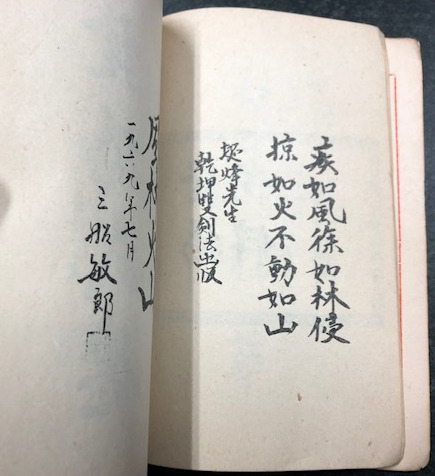 疾如風徐如林侵
掠如火不動如山
先生
乾坤雙劍法出版
風林火山
一九六九年七月
三船敏郎